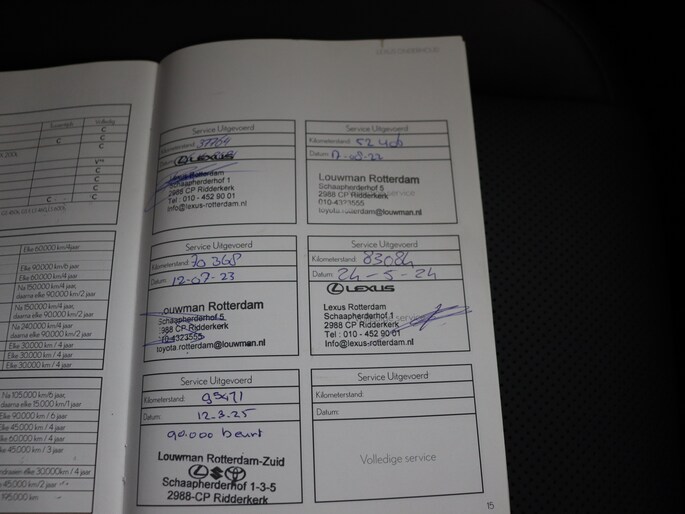 Tussentijds Volledig
C
C C
C
C
C
C
C C
C
Elke 60.000 km/4 jaar
Elke 90.000 km/6 jaar
Elke 60.000 km/4 jaar
Na 150.000 km/4 jaar,
daarna elke 90.000 km/2 jaar
Na 150.000 km/4 jaar,
daarna elke 90.000 km/2 jaar
Na 240.000 km/4 jaar
daarna elke 90.000 km/2 jaar
Elke 30.000 km / 4 jaar
Elke 30.000 km / 4 jaar
Elke 30.000 km / 4 jaar
Na 105.000 km/6 jaar,
daarna elke 15.000 km/1 jaar
Elke 90.000 km / 6 jaar
Elke 45.000 km / 4 jaar
Elke 60.000 km / 4 jaar
Elke 45.000 km / 3 jaar
elke 30.000km / 4 jaar
45.000 km / 2 jaar
195.000 km
Service Uitgevoerd
Kilometerstand: 37764
LEXUS
Lexus Rotterdam
Schaapherderhof 1
2988 CP Ridderkerk
Tel : 010 - 452 90 01
Info@lexus-rotterdam.nl
Service Uitgevoerd
Kilometerstand:
Datum:
Louwman Rotterdam
Schaapherderhof 5
2988 CP Ridderkerk
010-4323555
toyota.rotterdam@louwman.nl
Service Uitgevoerd
Kilometerstand: 70 368
Datum: 12-07-23
Louwman Rotterdam
Schaapherderhof 5
2988 CP Ridderkerk
010-4323555
toyota.rotterdam@louwman.nl
Service Uitgevoerd
Kilometerstand: 83084
Datum: 24-5-24
LEXUS
Lexus Rotterdam
Schaapherderhof 1
2988 CP Ridderkerk
Tel : 010 - 452 90 01
Info@lexus-rotterdam.nl
Service Uitgevoerd
Kilometerstand: 95471
Datum: 12-3-25
90.000 beurt
Louwman Rotterdam-Zuid
Schaapherderhof 1-3-5
2988-CP Ridderkerk
Service Uitgevoerd
Kilometerstand:
Datum:
Volledige service
15